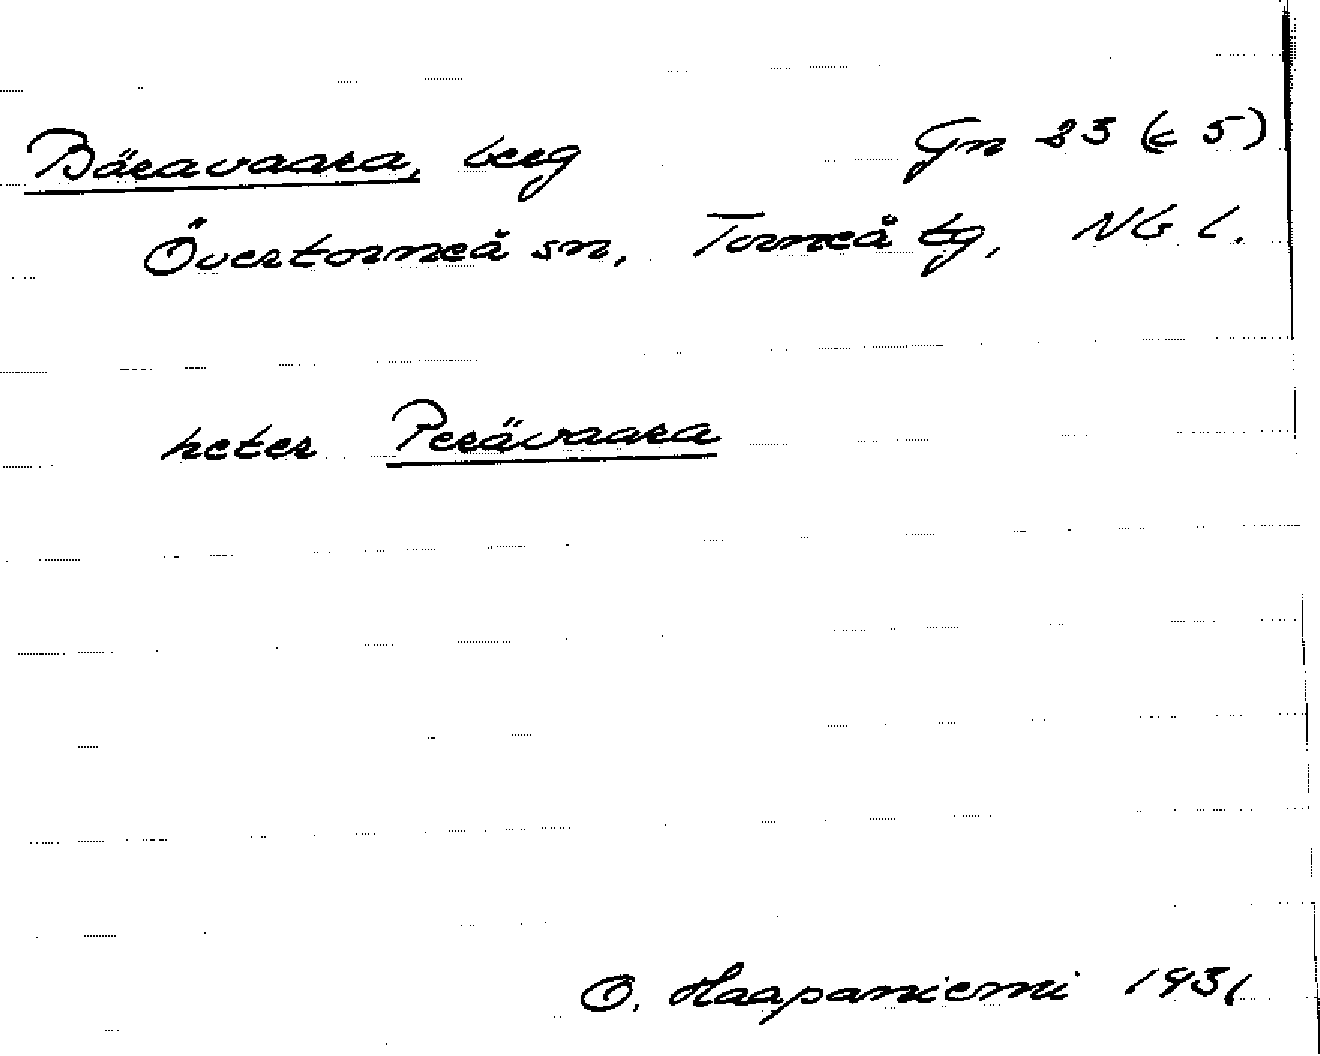 Bäravaara, berg Gn 23 (E 5)
Övertorneå sn, Torneå tg, Nb l.
heter Perävaara
O. Haapaniemi 1931